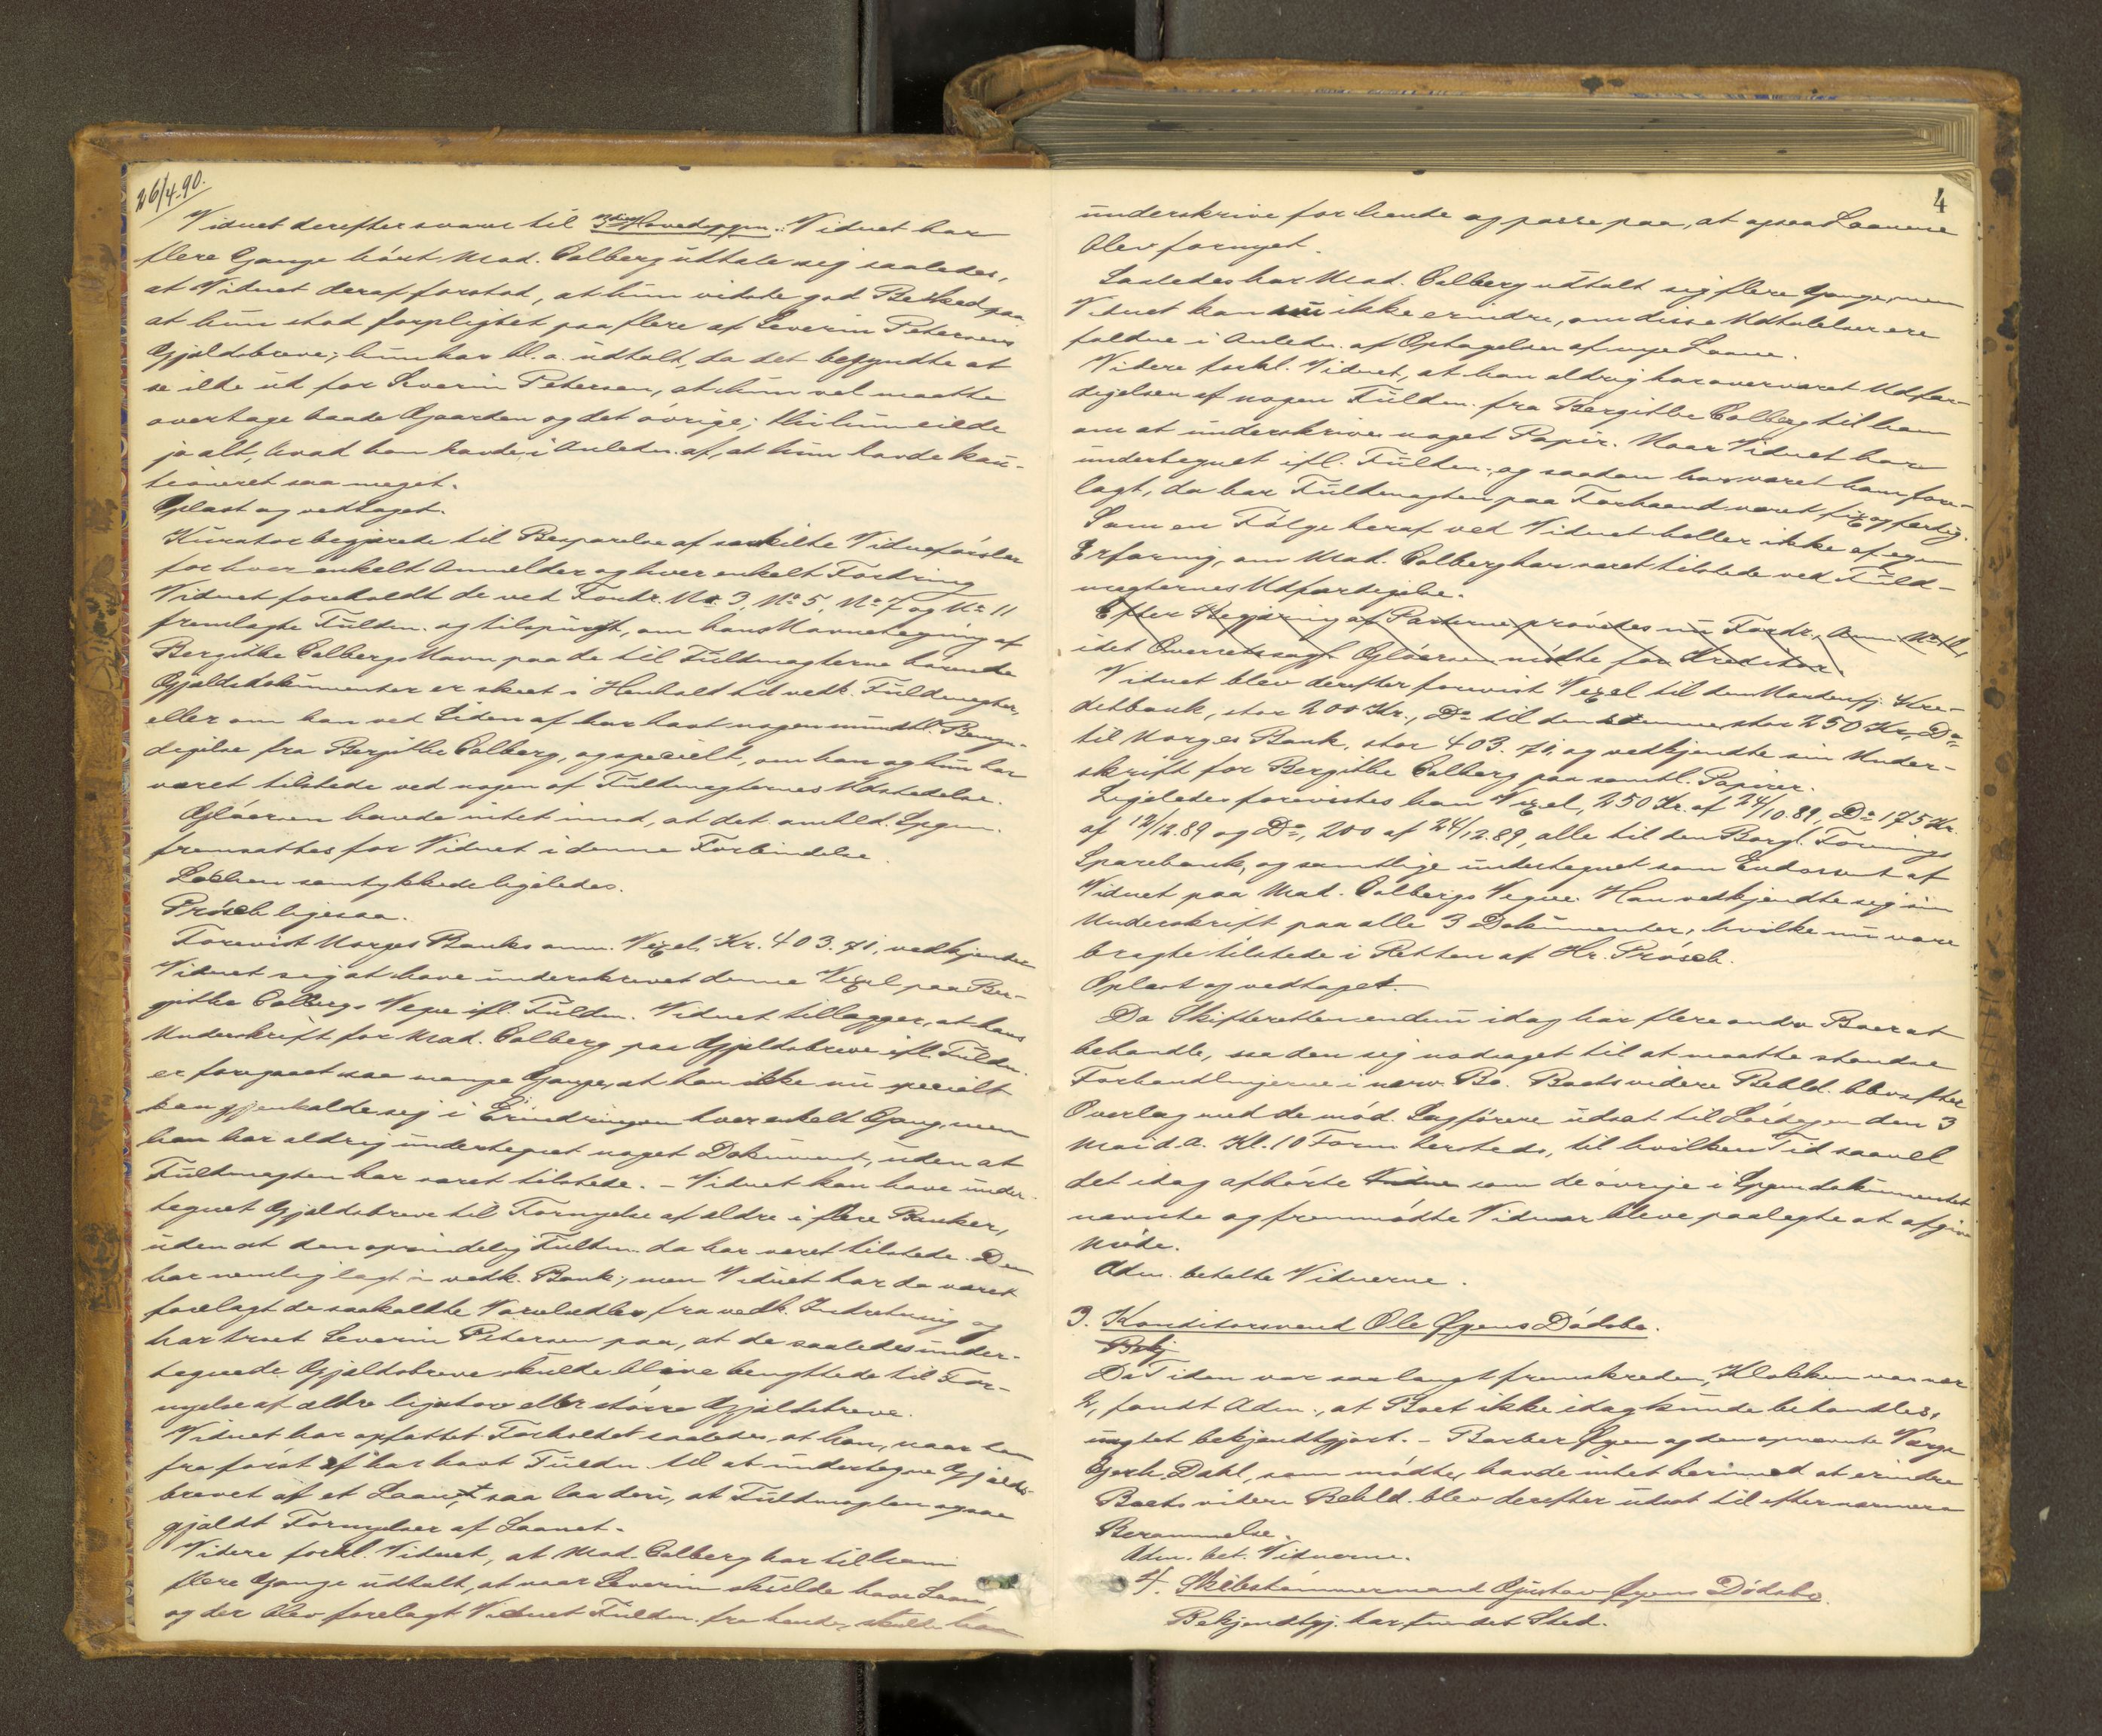 26/4.90.
Vidnet derefter svarer til 3die Hovedspgm.: Vidnet har
flere Gange hørt Mad. Colberg udtale sig saaledes,
at Vidnet deraf forstod, at hun vidste god Besked paa
at hun stod forpligtet paa flere af Severin Petersens
Gjældsbreve; hun har bl. a. udtalt, da det begyndte at
se ilde ud for Severin Petersen, at hun vel maatte
overtage baade Gaarden og det øvrige; thi hun eiede
jo alt, hvad han havde i Anledn. af, at hun havde kau-
tioneret saa meget.
Oplæst og vedtaget.
Kurator begjærede til Besparelse af særskilte Vidneførsler
for hver enkelt Anmelder og hver enkelt Fordring
Vidnet foreholdt de ved Fordr. No. 3, No 5, No 7 og No 11
fremlagte Fuldm. og tilspurgt, om hans Navnetegning af
Bergithe Colbergs Navn paa de til Fuldmagterne hørende
Gjældsdokumenter er skeet i Henhold til vedk. Fuldmagter,
eller om han ved Siden af har havt nogen mundtl. Bemyn-
digelse fra Bergithe Colberg, og specielt, om han og hun har
været tilstede ved nogen af Fuldmagternes Udstedelse.
Gløersen havde intet imod, at det anmeld. Spgm.
fremsattes for Vidnet i denne Forbindelse.
Lochen samtykkede ligeledes.
Prøsch ligesaa.
Forevist Norges Banks anm. Vexel, Kr. 403.71, vedkjender
Vidnet sig at have underskrevet denne Vexel paa Ber-
githe Colbergs Vegne ifl. Fuldm. Vidnet tillægger, at hans
Underskrift for Mad. Colberg paa Gjældsbreve ifl. Fuldm.
er foregaaet saa mange Gange, at han ikke nu specielt
kan gjenkalde sig i Erindringen hver enkelt Gang, men
han har aldrig undertegnet noget Dokument, uden at
Fuldmagten har været tilstede. – Vidnet kan have under-
tegnet Gjældsbreve til Fornyelse af ældre i flere Banker,
uden at den oprindelig Fuldm. da har været tilstede. Den
har nemlig lagt i vedk. Bank, men Vidnet har da været
forelagt de saakaldte Varselsedler fra vedk. Indretning og
har troet Severin Petersen paa, at de saaledes under-
tegnede Gjældsbreve skulde blive benyttede til For-
nyelse af ældre ligestore eller større Gjældsbreve.
Vidnet har opfattet Forholdet saaledes, at han, naar han
fra først af har havt Fuldm. til at undertegne Gjælds-
brevet af et Laan, saa laa deri, at Fuldmagten ogsaa
gjaldt Fornyelser af Laanet.
Videre forkl. Vidnet, at Mad. Colberg har til ham
flere Gange udtalt, at naar Severin skulde have Laan,
og der blev forelagt Vidnet Fuldm. fra hende, skulde han
4
underskrive for hende og passe paa, at ogsaa Laanene
blev fornyet.
Saaledes har Mad. Colberg udtalt sig flere Gange, men
Vidnet kan nu ikke erindre, om disse Udtalelser ere
faldne i Anledn. af Optagelsen af nye Laane.
Videre forkl. Vidnet, at han aldrig har overværet Udfær-
digelsen af nogen Fuldm. fra Bergithe Colberg til ham
om at underskrive noget Papir. Naar Vidnet har
undertegnet ifl. Fuldm. og saadan har været ham fore-
lagt, da har Fuldmagten paa Forhaand været fix og færdig.
Som en Følge heraf ved Vidnet heller ikke af egen
Erfaring, om Mad. Colberg har været tilstede ved Fuld-
magternes Udfærdigelse.
Efter Begjæring af Parterne prøvedes nu Fordr. Anm. No 11,
idet Overretssagf. Gløersen mødte for Kreditor.
Vidnet blev derefter forevist Vexel til den Nordenfj. Kre-
ditbank, stor 200 Kr., Do til den samme stor 250 Kr., Do
til Norges Bank, stor 403.71, og vedkjendte sin Under-
skrift for Bergithe Colberg paa samtl. Papirer.
Ligeledes forevistes han Vexel, 250 Kr. af 24/10.89, Do 175 Kr.
af 12/12.89 og Do, 200 af 24/12.89, alle til den Borgl. Forenings
Sparebank, og samtlige undertegnet som Endossent af
Vidnet paa Mad. Colbergs Vegne. Han vedkjendte sig sin
Underskrift paa alle 3 Dokumenter, hvilke nu vare
bragte tilstede i Retten af Hr. Prøsch.
Oplæst og vedtaget.
Da Skifteretten endnu idag har flere andre Boer at
behandle, saa den sig nødsaget til at maatte standse
Forhandlingerne i nærv. Bo. Boets videre Behld. blev efter
Overlæg med de mød. Sagførere udsat til Løverdag den 3
Mai d. A. Kl. 10 Form. hersteds, til hvilken Tid saavel
det idag afhørte Vidne som de øvrige i Spgm.dokumentet
nævnte og fremmødte Vidner bleve paalagte at afgive
Møde.
Adm. betalte Vidnerne.
3. Konditorsvend Ole Øyens Dødsbo.
Bekj
Da Tiden var saa langt fremskreden, Klokken var nær
2, fandt Adm., at Boet ikke idag kunde behandles,
uagtet bekjendtgjort. – Barber Øyen og den opnævnte Værge
Gerh. Dahl, som mødte, havde intet herimod at erindre
Boets videre Behld. blev derefter udsat til efter nærmere
Berammelse.
Adm. bet. Vidnerne.
4. Skibstømmermand Gustav Øyens Dødsbo.
Bekjendtgj. har fundet Sted.